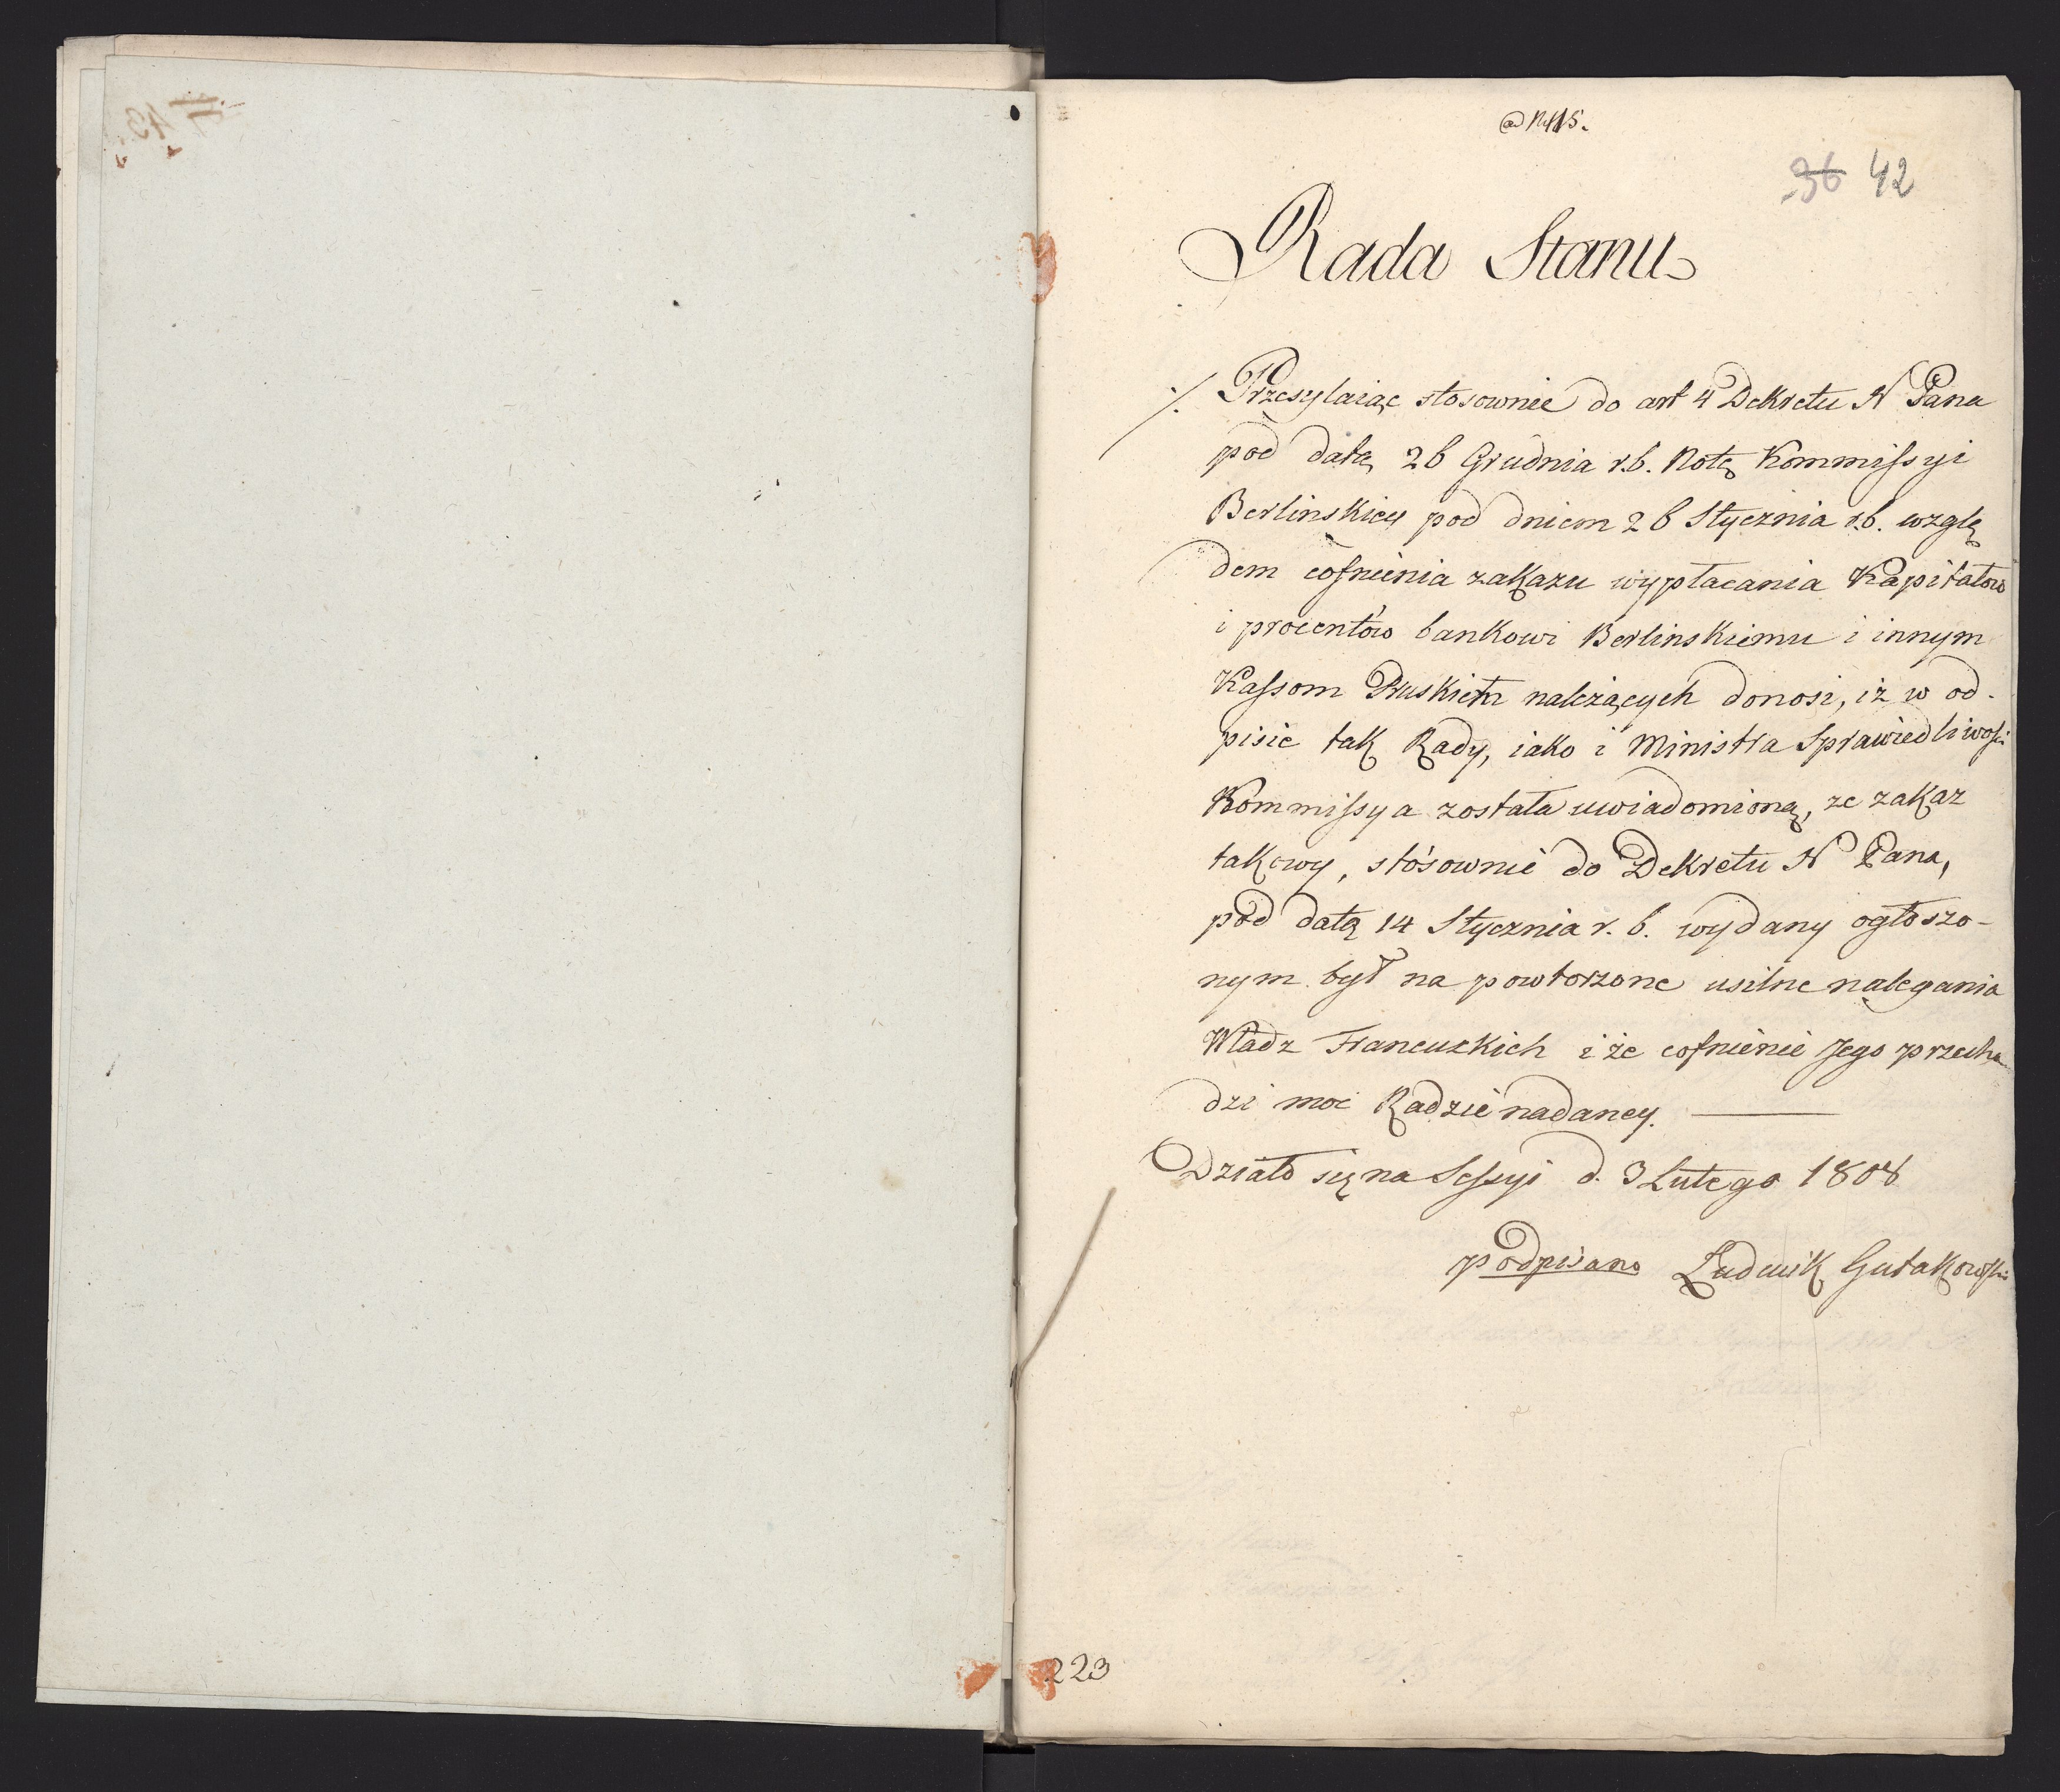 ad N 115.
36 42
Rada Stanu
./. Przesyłaiąc stosownie do art 4 Dekretu N Pana
pod datą 26 Grudnia r.b. Notę Kommissyi
Berlinskiey pod dniem 26 Stycznia r.b. wzglę
dem cofnienia zakazu wypłacania Kapitałow
i procentów bankowi Berlinskiemu i innym
Kassom Pruskim należących donosi, iż w od-
pisie tak Rady, iako i Ministra Sprawiedliwosci
Kommissya została uwiadomioną, ze zakaz
takowy, stósownie do Dekretu N Pana,
pod datą 14 Stycznia r. b. wydany ogłoszo-
nym był na powtorzone usilne nalegania
Władz Francuzkich i że cofnienie Jego przecho
dzi moc Radzie nadaney.
Działo się na Sessyi d. 3 Lutego 1808
podpisano Ludwik Gutakowski
223